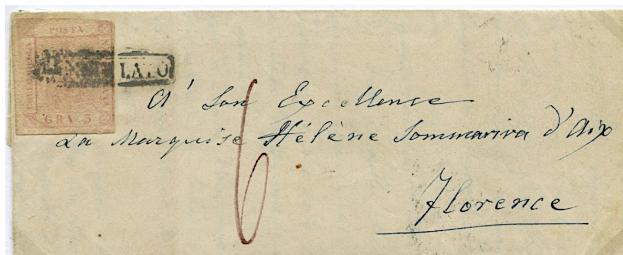 POSTA
GRA 5
A' Son Excellence
La Marquise Hélène Sommariva d'Aix
Florence
6